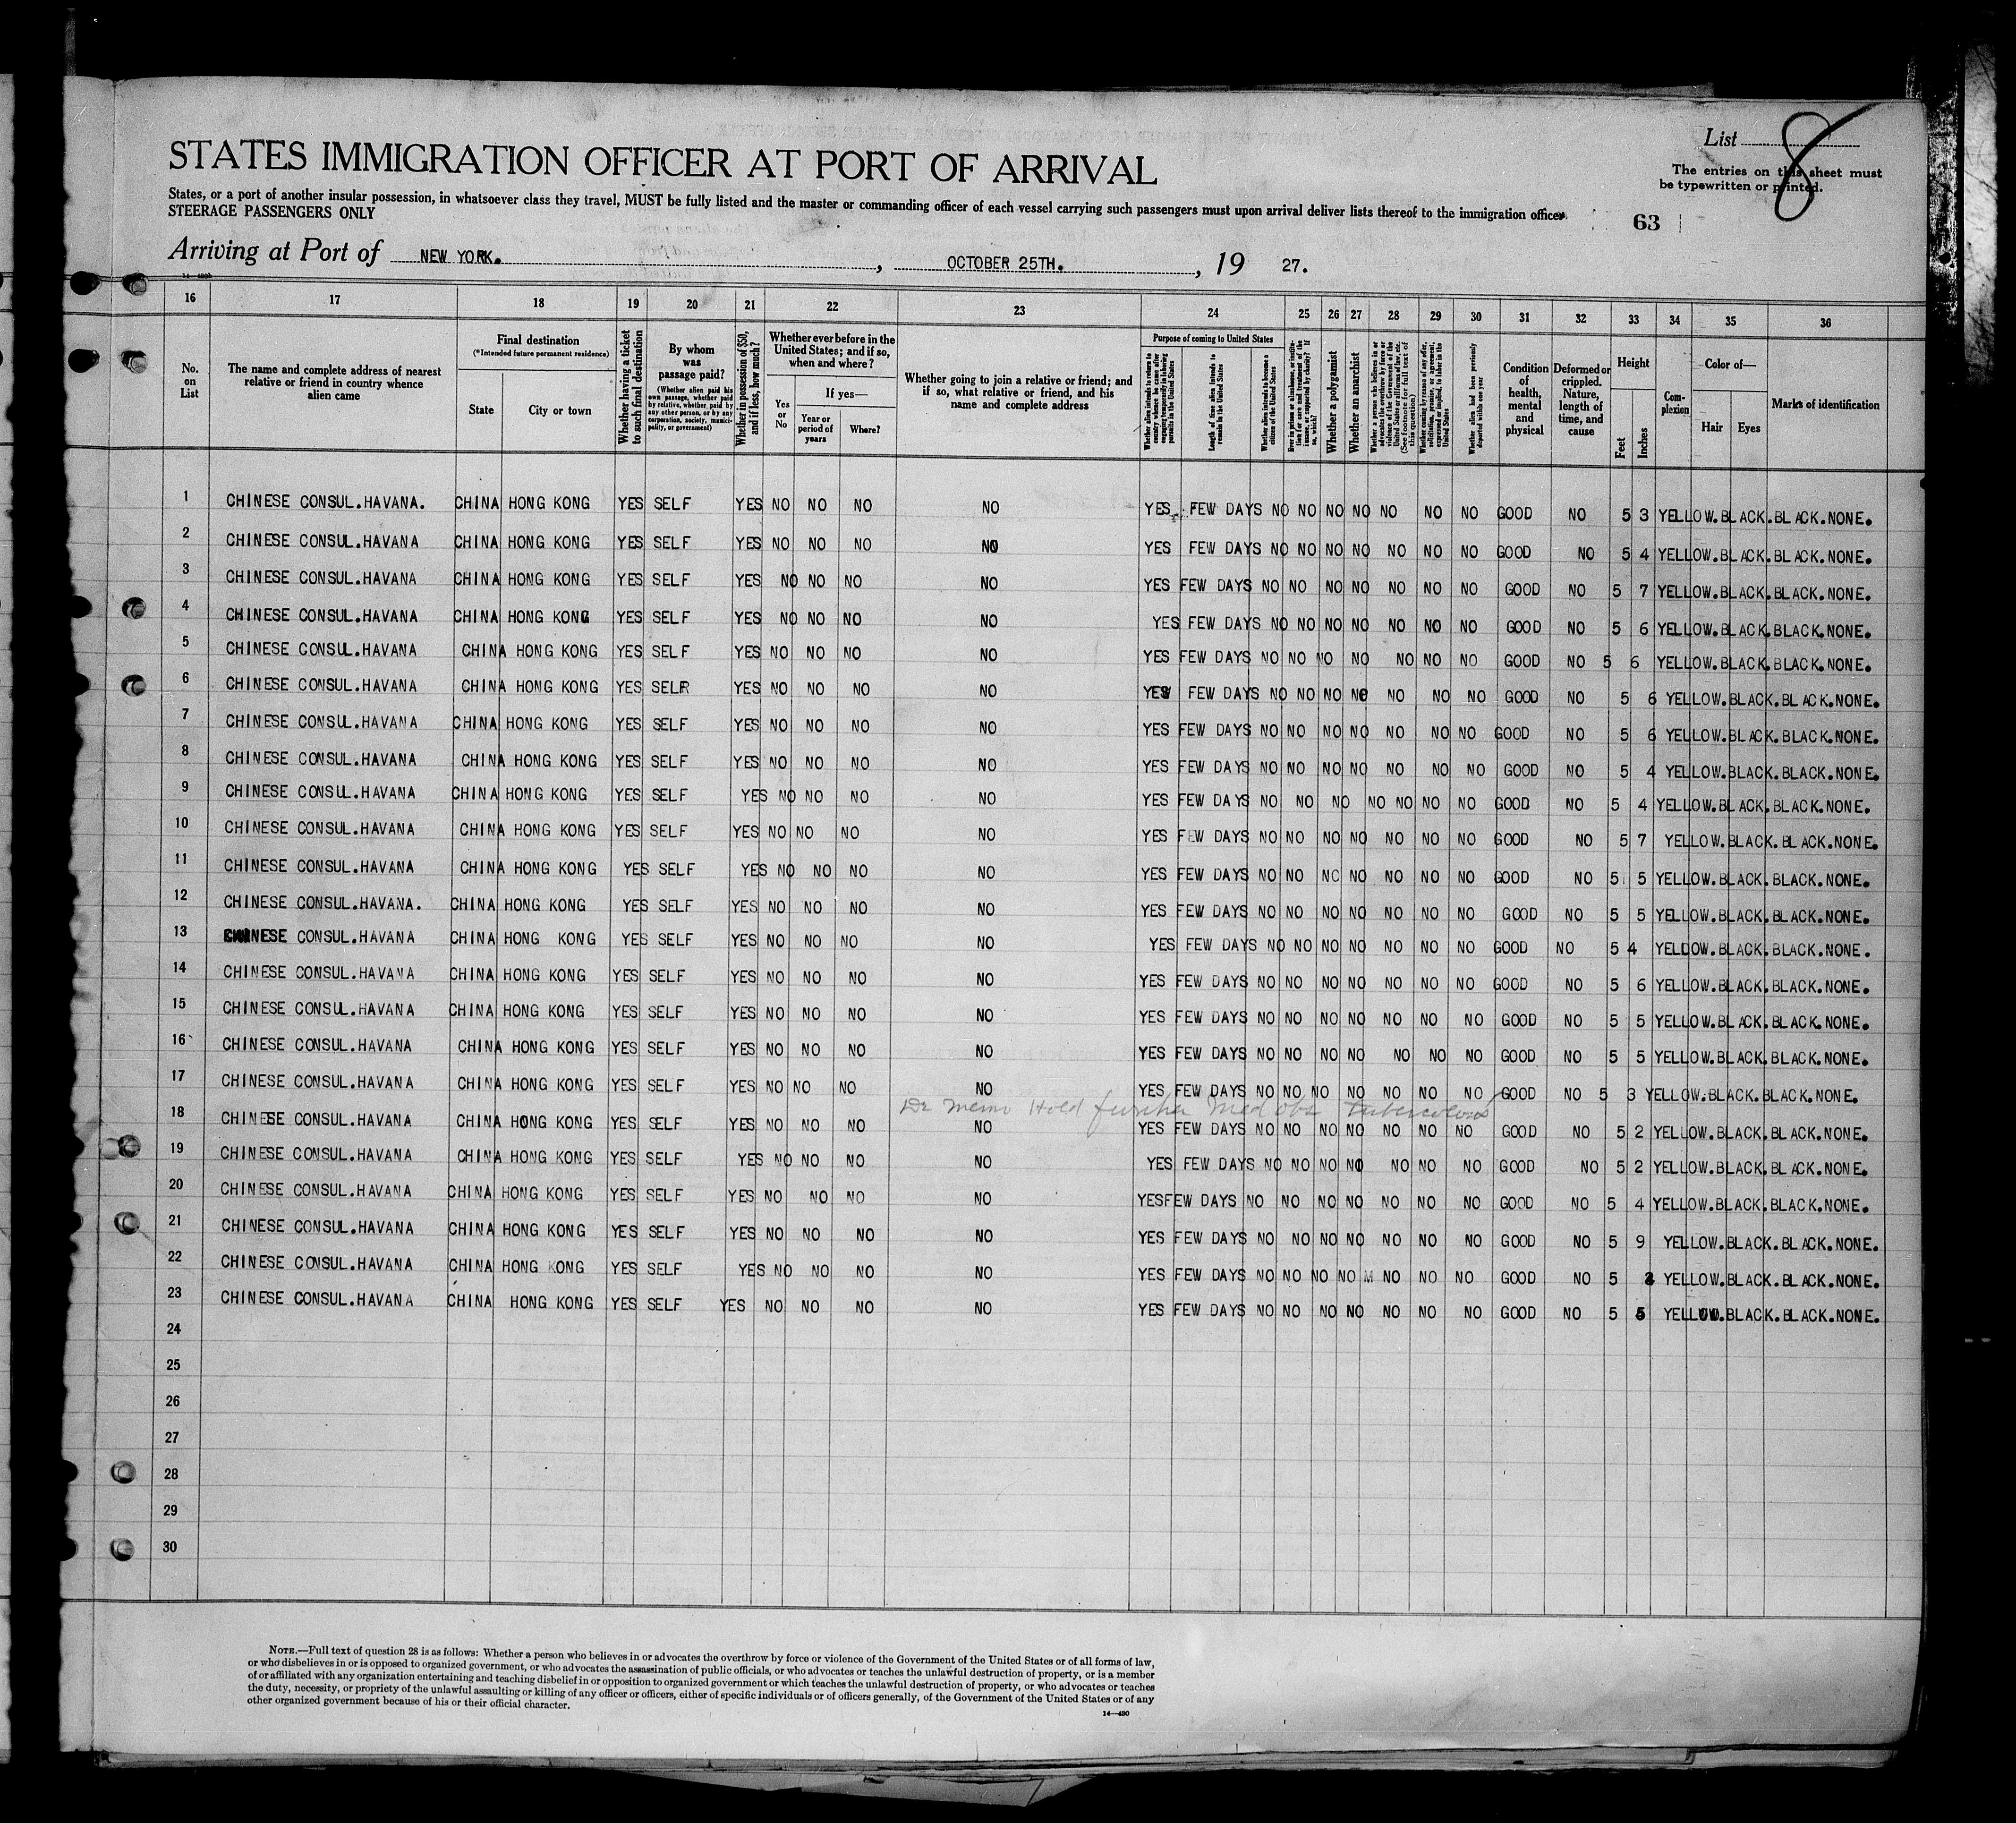 List 8
The entries on this sheet must
be typewritten or printed.
STATES IMMIGRATION OFFICER AT PORT OF ARRIVAL
States, or a port of another insular possession, in whatsoever class they travel, MUST be fully listed and the master or commanding officer of each vessel carrying such passengers must upon arrival deliver lists thereof to the immigration officer.
STEERAGE PASSENGERS ONLY
63
Arriving at Port of NEW YORK. , OCTOBER 25TH. , 19 27.
16 17 18 19 20 21 22 23 24 25 26 27 28 29 30 31 32 33 34 35 36
No. on List
The name and complete address of nearest relative or friend in country whence alien came
Final destination
(*Intended future permanent residence)
State
City or town
Whether having a ticket to such final destination
By whom was passage paid?
(Whether alien paid his own passage, whether paid by relative, whether paid by any other person, or by any corporation, society, municipality, or government)
Whether in possession of $50, and if less, how much?
Whether ever before in the United States; and if so, when and where?
Yes or No
If yes—
Year or period of years
Where?
Whether going to join a relative or friend; and if so, what relative or friend, and his name and complete address
Purpose of coming to United States
Whether alien intends to return to country whence he came after engaging temporarily in laboring pursuits in the United States
Length of time alien intends to remain in the United States
Whether alien intends to become a citizen of the United States
Ever in prison or almshouse, or institution for care and treatment of the insane, or supported by charity? If so, which?
Whether a polygamist
Whether an anarchist
Whether a person who believes in or advocates the overthrow by force or violence of the Government of the United States or all forms of law, etc. (See footnote for full text of this question)
Whether coming by reason of any offer, solicitation, promise, or agreement, expressed or implied, to labor in the United States
Whether alien had been previously deported within one year
Condition of health, mental and physical
Deformed or crippled. Nature, length of time, and cause
Height
Feet
Inches
Complexion
Color of—
Hair
Eyes
Marks of identification
1 CHINESE CONSUL.HAVANA. CHINA HONG KONG YES SELF YES NO NO NO NO YES FEW DAYS NO NO NO NO NO NO NO GOOD NO 5 3 YELLOW.BLACK.BLACK.NONE.
2 CHINESE CONSUL.HAVANA CHINA HONG KONG YES SELF YES NO NO NO NO YES FEW DAYS NO NO NO NO NO NO NO GOOD NO 5 4 YELLOW.BLACK.BLACK.NONE.
3 CHINESE CONSUL.HAVANA CHINA HONG KONG YES SELF YES NO NO NO NO YES FEW DAYS NO NO NO NO NO NO NO GOOD NO 5 7 YELLOW.BLACK.BLACK.NONE.
4 CHINESE CONSUL.HAVANA CHINA HONG KONG YES SELF YES NO NO NO NO YES FEW DAYS NO NO NO NO NO NO NO GOOD NO 5 6 YELLOW.BLACK.BLACK.NONE.
5 CHINESE CONSUL.HAVANA CHINA HONG KONG YES SELF YES NO NO NO NO YES FEW DAYS NO NO NO NO NO NO NO GOOD NO 5 6 YELLOW.BLACK.BLACK.NONE.
6 CHINESE CONSUL.HAVANA CHINA HONG KONG YES SELF YES NO NO NO NO YES FEW DAYS NO NO NO NO NO NO NO GOOD NO 5 6 YELLOW.BLACK.BLACK.NONE.
7 CHINESE CONSUL.HAVANA CHINA HONG KONG YES SELF YES NO NO NO NO YES FEW DAYS NO NO NO NO NO NO NO GOOD NO 5 6 YELLOW.BLACK.BLACK.NONE.
8 CHINESE CONSUL.HAVANA CHINA HONG KONG YES SELF YES NO NO NO NO YES FEW DAYS NO NO NO NO NO NO NO GOOD NO 5 4 YELLOW.BLACK.BLACK.NONE.
9 CHINESE CONSUL.HAVANA CHINA HONG KONG YES SELF YES NO NO NO NO YES FEW DAYS NO NO NO NO NO NO NO GOOD NO 5 4 YELLOW.BLACK.BLACK.NONE.
10 CHINESE CONSUL.HAVANA CHINA HONG KONG YES SELF YES NO NO NO NO YES FEW DAYS NO NO NO NO NO NO NO GOOD NO 5 7 YELLOW.BLACK.BLACK.NONE.
11 CHINESE CONSUL.HAVANA CHINA HONG KONG YES SELF YES NO NO NO NO YES FEW DAYS NO NO NO NO NO NO NO GOOD NO 5 5 YELLOW.BLACK.BLACK.NONE.
12 CHINESE CONSUL.HAVANA. CHINA HONG KONG YES SELF YES NO NO NO NO YES FEW DAYS NO NO NO NO NO NO NO GOOD NO 5 5 YELLOW.BLACK.BLACK.NONE.
13 CHINESE CONSUL.HAVANA CHINA HONG KONG YES SELF YES NO NO NO NO YES FEW DAYS NO NO NO NO NO NO NO GOOD NO 5 4 YELLOW.BLACK.BLACK.NONE.
14 CHINESE CONSUL.HAVANA CHINA HONG KONG YES SELF YES NO NO NO NO YES FEW DAYS NO NO NO NO NO NO NO GOOD NO 5 6 YELLOW.BLACK.BLACK.NONE.
15 CHINESE CONSUL.HAVANA CHINA HONG KONG YES SELF YES NO NO NO NO YES FEW DAYS NO NO NO NO NO NO NO GOOD NO 5 5 YELLOW.BLACK.BLACK.NONE.
16 CHINESE CONSUL.HAVANA CHINA HONG KONG YES SELF YES NO NO NO NO YES FEW DAYS NO NO NO NO NO NO NO GOOD NO 5 5 YELLOW.BLACK.BLACK.NONE.
17 CHINESE CONSUL.HAVANA CHINA HONG KONG YES SELF YES NO NO NO NO YES FEW DAYS NO NO NO NO NO NO NO GOOD NO 5 3 YELLOW.BLACK.BLACK.NONE.
Dr memo Hold further Med obs Tuberculosis
18 CHINESE CONSUL.HAVANA CHINA HONG KONG YES SELF YES NO NO NO NO YES FEW DAYS NO NO NO NO NO NO NO GOOD NO 5 2 YELLOW.BLACK.BLACK.NONE.
19 CHINESE CONSUL.HAVANA CHINA HONG KONG YES SELF YES NO NO NO NO YES FEW DAYS NO NO NO NO NO NO NO GOOD NO 5 2 YELLOW.BLACK.BLACK.NONE.
20 CHINESE CONSUL.HAVANA CHINA HONG KONG YES SELF YES NO NO NO NO YESFEW DAYS NO NO NO NO NO NO NO GOOD NO 5 4 YELLOW.BLACK.BLACK.NONE.
21 CHINESE CONSUL.HAVANA CHINA HONG KONG YES SELF YES NO NO NO NO YES FEW DAYS NO NO NO NO NO NO NO GOOD NO 5 9 YELLOW.BLACK.BLACK.NONE.
22 CHINESE CONSUL.HAVANA CHINA HONG KONG YES SELF YES NO NO NO NO YES FEW DAYS NO NO NO NO NO NO NO GOOD NO 5 YELLOW.BLACK.BLACK.NONE.
23 CHINESE CONSUL.HAVANA CHINA HONG KONG YES SELF YES NO NO NO NO YES FEW DAYS NO NO NO NO NO NO NO GOOD NO 5 5 YELLOW.BLACK.BLACK.NONE.
24
25
26
27
28
29
30
NOTE.—Full text of question 28 is as follows: Whether a person who believes in or advocates the overthrow by force or violence of the Government of the United States or of all forms of law,
or who disbelieves in or is opposed to organized government, or who advocates the assassination of public officials, or who advocates or teaches the unlawful destruction of property, or is a member
of or affiliated with any organization entertaining and teaching disbelief in or opposition to organized government or which teaches the unlawful destruction of property, or who advocates or teaches
the duty, necessity, or propriety of the unlawful assaulting or killing of any officer or officers, either of specific individuals or of officers generally, of the Government of the United States or of any
other organized government because of his or their official character.
14—430